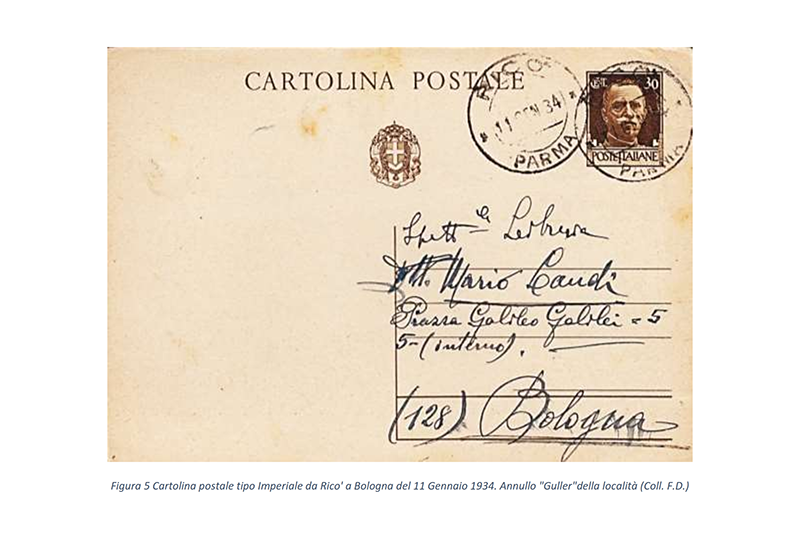 CARTOLINA POSTALE
RICO'
11 GEN 34
PARMA
CENT. 30
POSTE ITALIANE
PARMA
Spett.le
Mario Candi
Piazza Galileo Galilei = 5
5-(interno).
(128) Bologna
Figura 5 Cartolina postale tipo Imperiale da Rico' a Bologna del 11 Gennaio 1934. Annullo "Guller"della località (Coll. F.D.)